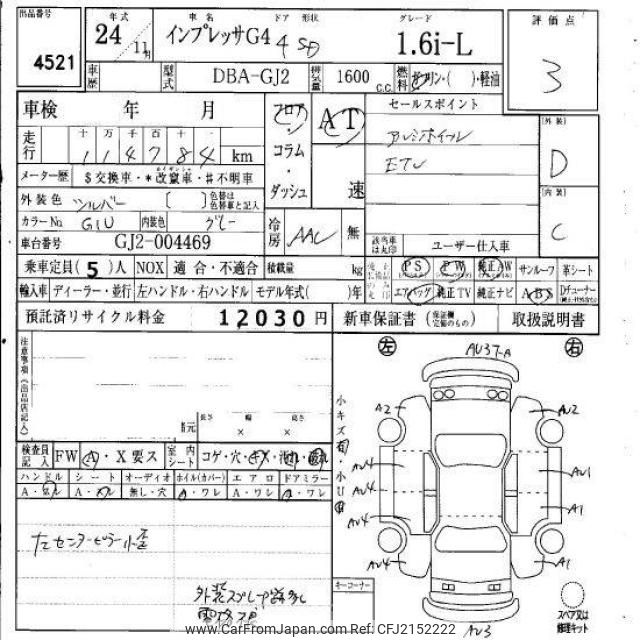 出品番号 年式 車名 ドア 形状 グレード 評価点
4521 24 11月 インプレッサG4 4 SD 1.6i-L 3
車歴 型式 DBA-GJ2 排気量 1600 c.c. 燃料 ガソリン・( )・軽油
車検 年 月 フロア・コラム・ダッシュ AT 速 セールスポイント [外装]
走行 十 万 千 百 十 一 アルミホイル
1 1 4 7 8 4 km ETC D
メーター歴 $交換車・*改竄車・#不明車 [内装]
外装色 シルバー [ ] 色替は色替車と記入
カラーNo G1U 内装色 グレー 冷房 AAC 無 C
車台番号 GJ2-004469 該当車は丸印 ユーザー仕入車
乗車定員(5)人 NOX 適合・不適合 積載量 kg PS PW 純正AW サンルーフ 革シート
輸入車 ディーラー・並行 左ハンドル・右ハンドル モデル年式( )年 エアバッグ 純正TV 純正ナビ ABS Dチューナー
預託済リサイクル料金 12030円 新車保証書 (保証欄記載のもの) 取扱説明書
左 AU37-A 右
注意事項(出品店記入)
小キズ有・小U有
A2 AU2
諸元 長さ 幅 高さ
× ×
検査員記入 FW A・X要ス 室内シート コゲ・穴・キズ・汚れ・破れ
AU4 AU1
ハンドル シート オーディオ ホイル(カバー) エアロ ドアミラー
A・荒レ A・ヌレ 無し・穴 A・ワレ A・ワレ A・ワレ
AU4 A1
AU4
左センターピラー小歪
AU4 A1
外装スプレー跡多し
キーコーナー
スペア又は修理キット
AU3
www.CarFromJapan.com Ref: CFJ2152222